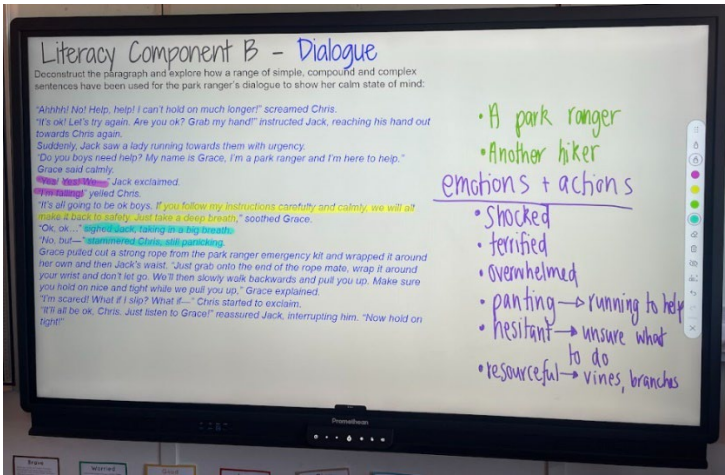 Literacy Component B - Dialogue
Deconstruct the paragraph and explore how a range of simple, compound and complex
sentences have been used for the park ranger's dialogue to show her calm state of mind:
"Ahhhh! No! Help, help! I can't hold on much longer!" screamed Chris.
"It's ok! Let's try again. Are you ok? Grab my hand!" instructed Jack, reaching his hand out
towards Chris again.
Suddenly, Jack saw a lady running towards them with urgency.
"Do you boys need help? My name is Grace, I'm a park ranger and I'm here to help."
Grace said calmly.
"Yes! Yes! We—" Jack exclaimed.
"I'm falling!" yelled Chris.
"It's all going to be ok boys. If you follow my instructions carefully and calmly, we will all
make it back to safety. Just take a deep breath," soothed Grace.
"Ok, ok…" sighed Jack, taking in a big breath.
"No, but—" stammered Chris, still panicking.
Grace pulled out a strong rope from the park ranger emergency kit and wrapped it around
her own and then Jack's waist. "Just grab onto the end of the rope mate, wrap it around
your wrist and don't let go. We'll then slowly walk backwards and pull you up. Make sure
you hold on nice and tight while we pull you up," Grace explained.
"I'm scared! What if I slip? What if—" Chris started to exclaim.
"It'll all be ok, Chris. Just listen to Grace!" reassured Jack, interrupting him. "Now hold on
tight!"
• A park ranger
• Another hiker
emotions + actions
• Shocked
• terrified
• overwhelmed
• panting → running to help
• hesitant → unsure what
to do
• resourceful → vines, branches
Promethean
Brave
Worried
Good